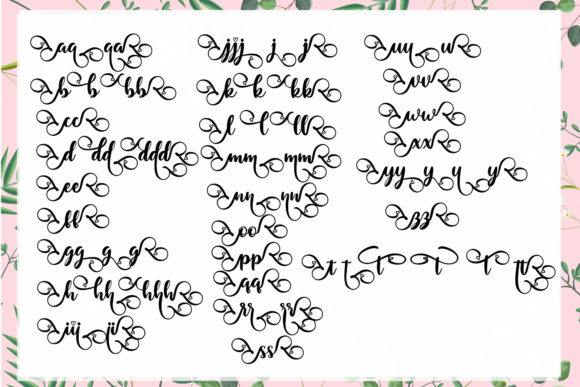 aa aa
b b bb
cc
d dd ddd
ee
ff
gg g g
h hh hhh
iii ii
jjj j j
k k kk
l l ll
mm mm
nn nn
oo
pp
qq
rr rr
ss
uu u
vv
ww
xx
yy y y y
zz
t t t t t tt